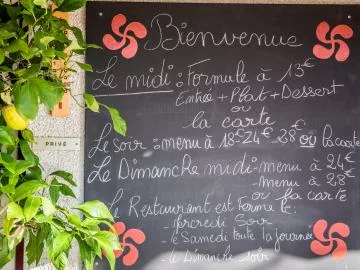 Bienvenue
Le midi : Formule à 13€
Entrée + Plat + Dessert
ou
la carte
Le soir : menu à 18-24€-28€ ou la carte
Le Dimanche midi-menu à 24€
-menu à 28€
ou la carte
Le Restaurant est Fermé le :
- mercredi Soir
- le Samedi toute la journée
- le Dimanche soir
PRIVÉ